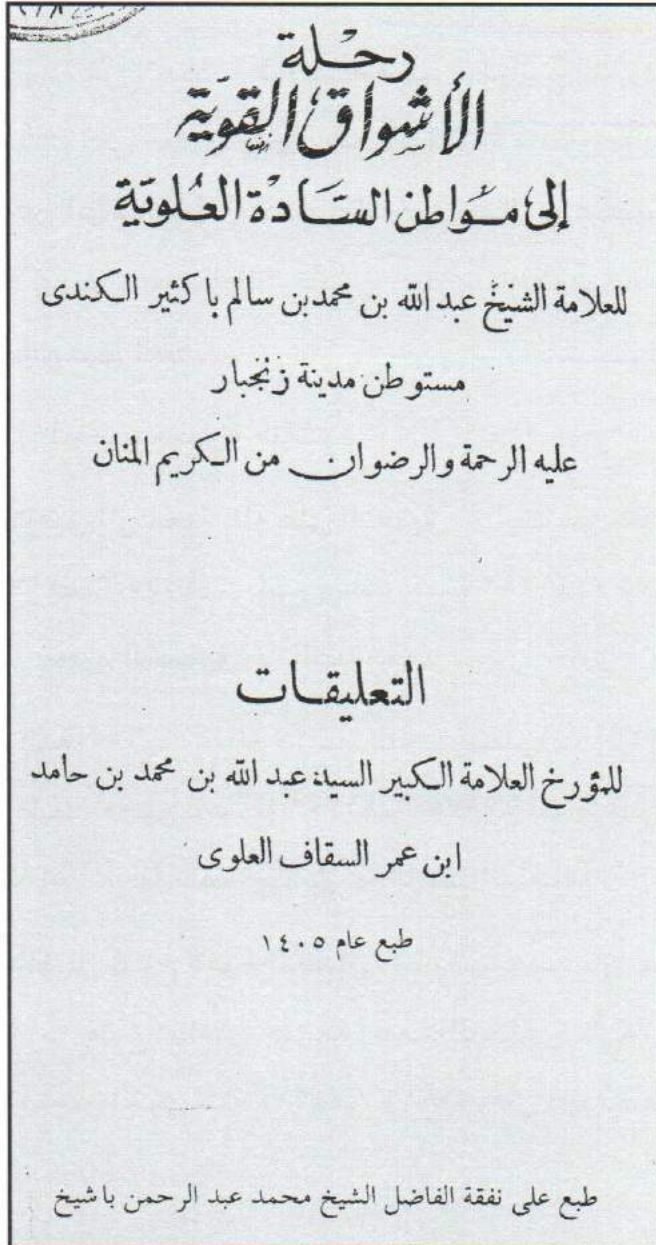 رحلة
الأشواق القوية
إلى مواطن السادة العلوية
للعلامة الشيخ عبد الله بن محمد بن سالم باكثير الكندى
مستوطن مدينة زنجبار
عليه الرحمة والرضوان من الكريم المنان
التعليقات
للمؤرخ العلامة الكبير السيد عبد الله بن محمد بن حامد
ابن عمر السقاف العلوى
طبع عام ١٤٠٥
طبع على نفقة الفاضل الشيخ محمد عبد الرحمن باشيخ